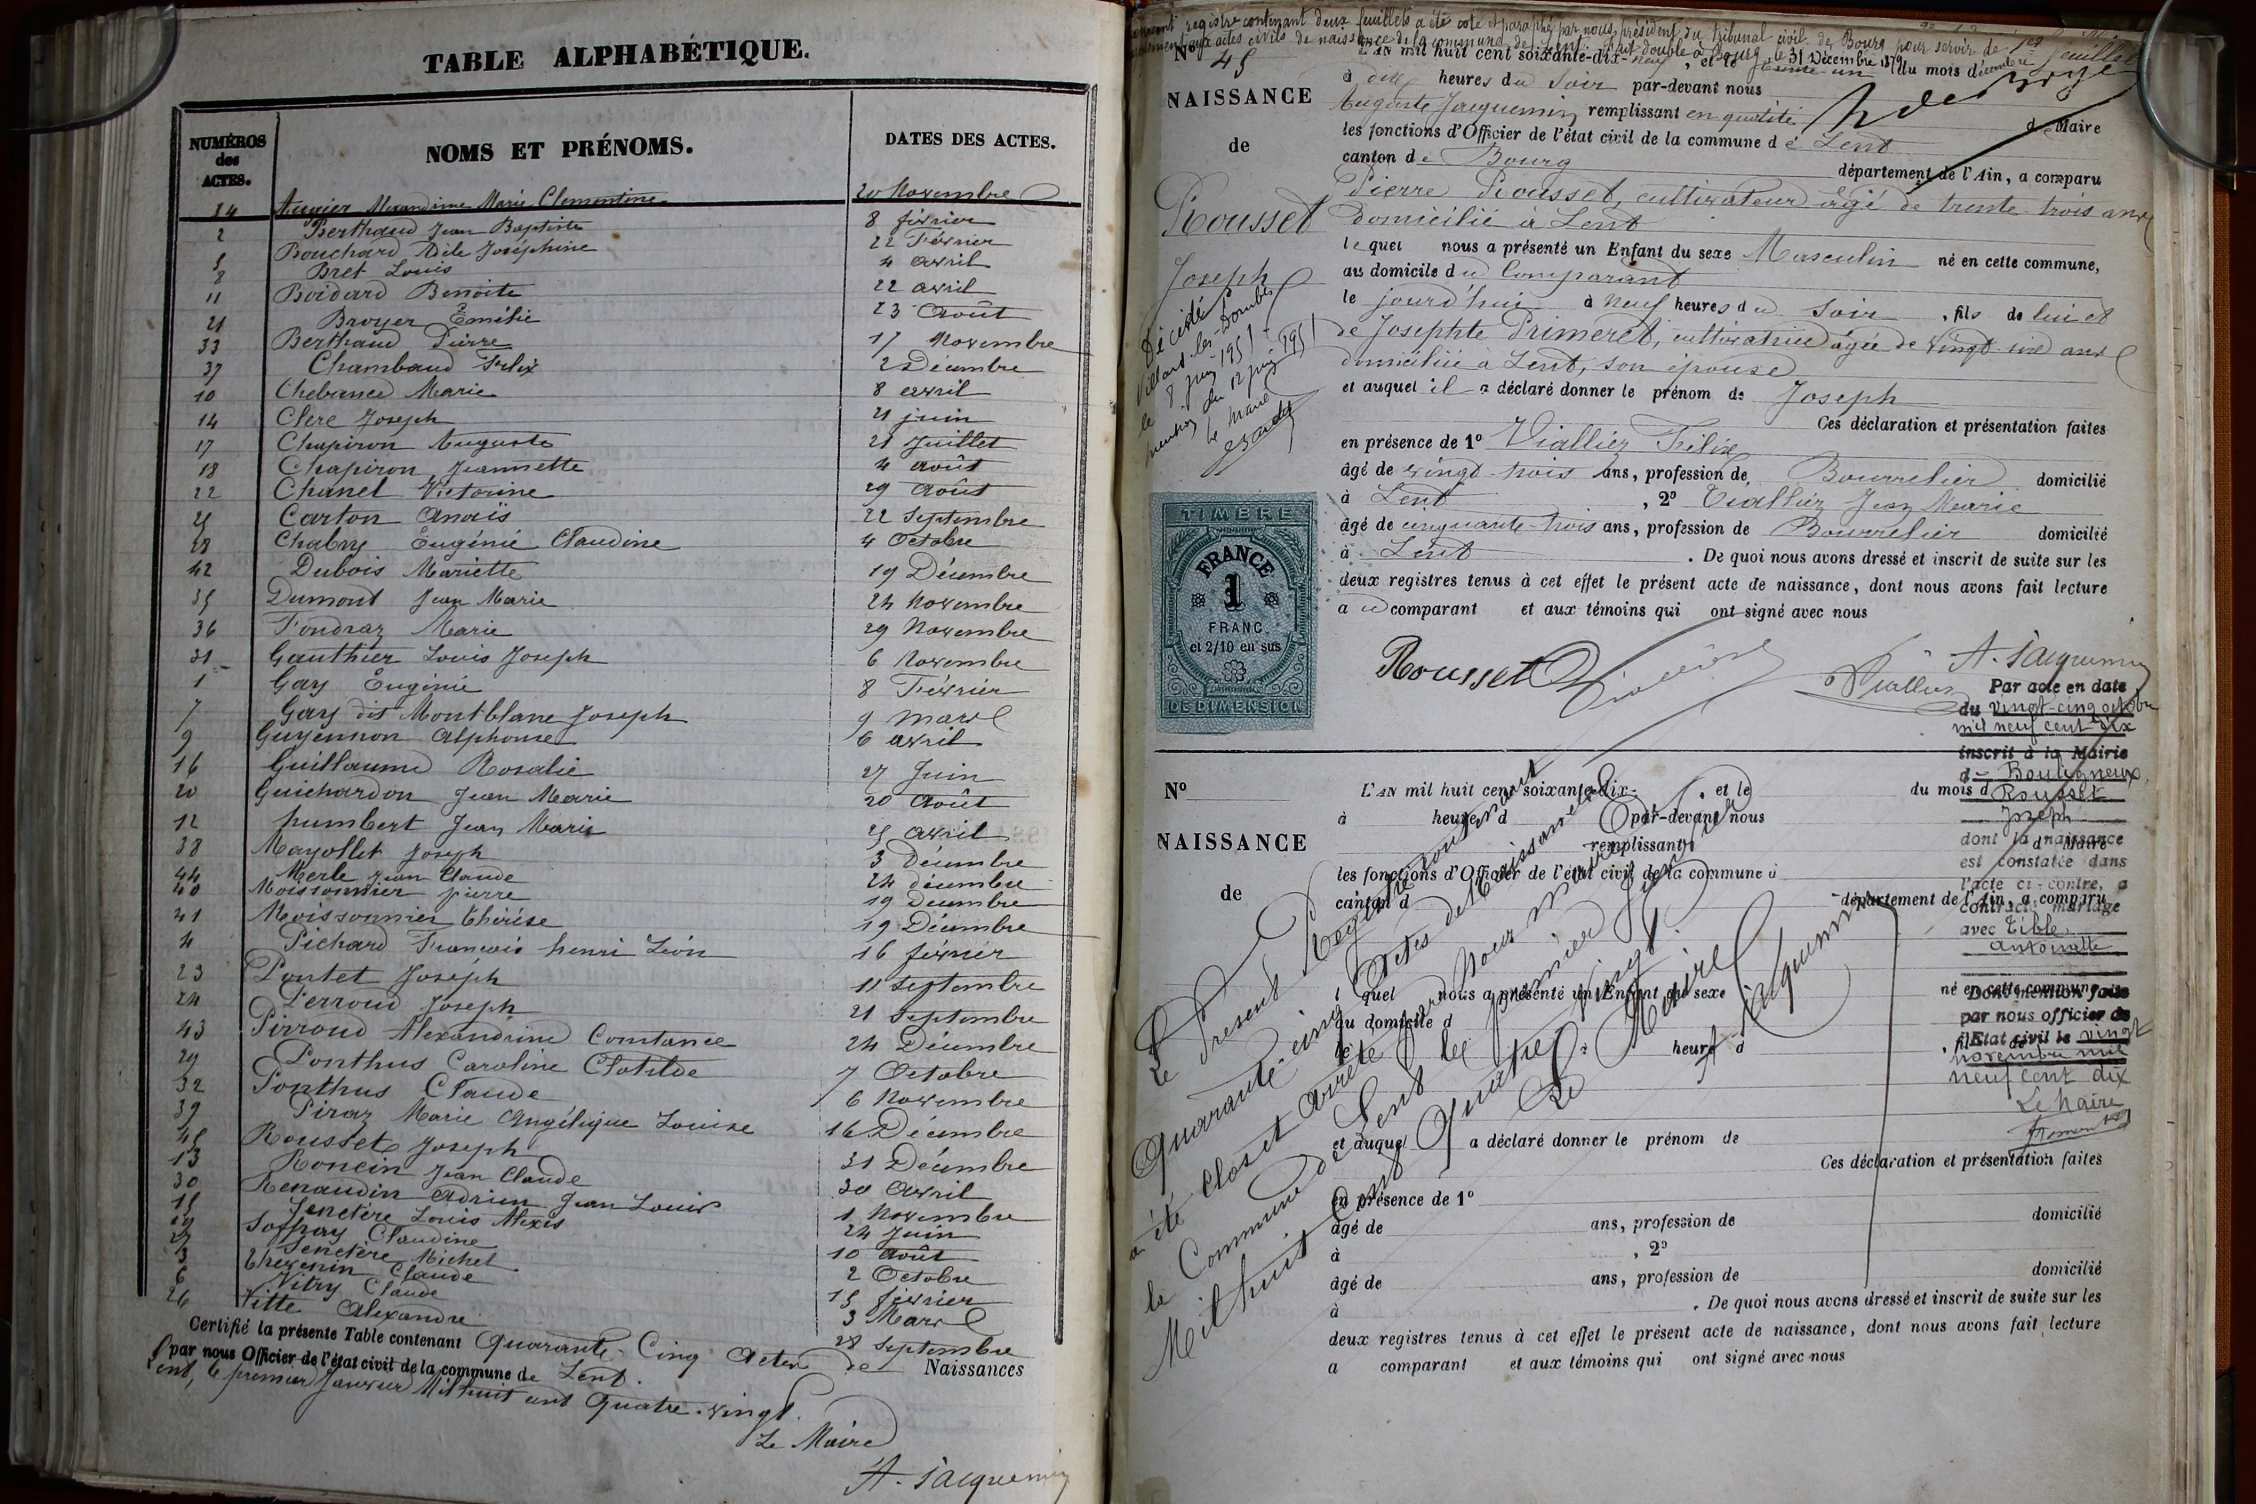 TABLE ALPHABÉTIQUE.
NUMÉROS des ACTES. NOMS ET PRÉNOMS. DATES DES ACTES.
34 Alexandrine Marie Clementine 20 Novembre
2 Berthaud Jean Baptiste 8 février
5 Bouchard Adèle Joséphine 22 Février
8 Bret Louis 4 avril
11 Boidard Benoite 22 avril
21 Broyer Émélie 23 Août
33 Berthaud Pierre 17 Novembre
37 Chambaud Félix 2 Décembre
10 Chebance Marie 8 avril
14 Clerc Joseph 21 juin
17 Chapiron Auguste 21 Juillet
18 Chapiron Jeannette 4 août
22 Chanel Victorine 29 Août
25 Carton Anaïs 22 Septembre
28 Chabry Eugénie Claudine 4 Octobre
42 Dubois Mariette 19 Décembre
35 Dumont Jean Marie 24 Novembre
36 Fondraz Marie 29 Novembre
31 Gauthier Louis Joseph 6 Novembre
1 Gay Eugénie 8 Février
7 Gay dit Montblanc Joseph 9 mars
9 Guyennon Alphonse 6 avril
16 Guillaume Rosalie 27 Juin
20 Guichardon Jean Marie 20 Août
12 humbert Jean Marie 25 avril
38 Mayollet Joseph 3 Décembre
44 Merle Jean Claude 24 décembre
40 Moissonnier pierre 19 Décembre
41 Moissonnier thérèse 19 Décembre
4 Pichard François henri Léon 16 février
23 Pontet Joseph 11 Septembre
24 Perroud Joseph 21 Septembre
43 Pirroud Alexandrine Constance 24 Décembre
29 Ponthus Caroline Clotilde 7 Octobre
32 Ponthus Claude 6 Novembre
39 Piraz Marie Angélique Louise 16 Décembre
45 Rousset Joseph 31 Décembre
13 Roncin Jean Claude 30 Avril
30 Renaudin Adrien Jean Louis 1 Novembre
15 Senetère Louis Alexis 24 Juin
19 Soffray Claudine 10 Août
27 Senetère Michel 2 Octobre
3 thevenin Claude 15 février
6 Vitry Claude 3 Mars
26 Vitte Alexandre 28 Septembre
Certifié la présente Table contenant Quarante-Cinq Actes de Naissances
par nous Officier de l'état civil de la commune de Lent.
Lent, le premier Janvier Mil huit cent Quatre-vingt.
Le Maire
A. Jacquemin
présent registre contenant deux feuillets a été coté et paraphé par nous, président du tribunal civil de Bourg pour servir de
aux actes civils de naissance de la commune de Lent. fait double à Bourg, le 31 Décembre 1879
1er feuillet
N° 45
NAISSANCE
de
Rousset
Joseph
Décédé à
Villars-les-Dombes
le 8 juin 1951
mention du 12 juin 1951
Le Maire
L'AN mil huit cent soixante-dix-neuf, et le trente un du mois décembre
à dix heures du Soir par-devant nous
Auguste Jacquemin remplissant en qualité de Maire
les fonctions d'Officier de l'état civil de la commune de Lent
canton de Bourg département de l'Ain, a comparu
Pierre Rousset, cultivateur âgé de trente trois ans
domicilié à Lent
lequel nous a présenté un Enfant du sexe Masculin né en cette commune,
au domicile du Comparant
le jourd'hui à neuf heures du Soir, fils de lui et
de Josephte Primeret, cultivatrice âgée de vingt six ans
domiciliée à Lent, son épouse
et auquel il a déclaré donner le prénom de Joseph
Ces déclaration et présentation faites
en présence de 1° Viallier Félix
âgé de vingt trois ans, profession de Bourrelier domicilié
à Lent, 2° Viallier Jean Marie
âgé de cinquante-trois ans, profession de Bourrelier domicilié
à Lent. De quoi nous avons dressé et inscrit de suite sur les
deux registres tenus à cet effet le présent acte de naissance, dont nous avons fait lecture
au comparant et aux témoins qui ont signé avec nous
TIMBRE
FRANCE
1
FRANC
et 2/10 en sus
DE DIMENSION
Rousset
Viallier
A. Jacquemin
Par acte en date
du vingt-cinq octobre
mil neuf cent dix
inscrit à la Mairie
de Bouligneux
Rousset
Joseph
dont la naissance
est constatée dans
l'acte ci-contre, a
contracté mariage
avec Tible
Antoinette
Dont mention faite
par nous officier de
l'Etat civil le vingt
novembre mil
neuf cent dix
Le Maire
N°
NAISSANCE
de
L'AN mil huit cent soixante-dix- , et le du mois d
à heures d par-devant nous
remplissant d Maire
les fonctions d'Officier de l'état civil de la commune d
canton d département de l'Ain, a comparu
lequel nous a présenté un Enfant du sexe né en cette commune,
au domicile d
le à heure d , fil de
et auquel a déclaré donner le prénom de
Ces déclaration et présentation faites
en présence de 1°
âgé de ans, profession de domicilié
à , 2°
âgé de ans, profession de domicilié
à . De quoi nous avons dressé et inscrit de suite sur les
deux registres tenus à cet effet le présent acte de naissance, dont nous avons fait lecture
a comparant et aux témoins qui ont signé avec nous
Le présent Registre contenant
Quarante-cinq Actes de Naissances
a été clos et arrêté par Nous Maire de
la Commune de Lent le premier Janvier
Mil huit Cent Quatre vingt.
Le Maire
A. Jacquemin